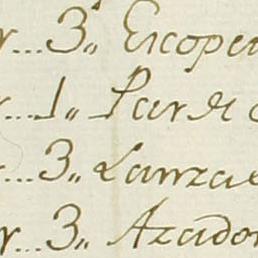 r...3,, Escopet
r...1,, Par de
r...3,, Lanzas
r...3,, Azador